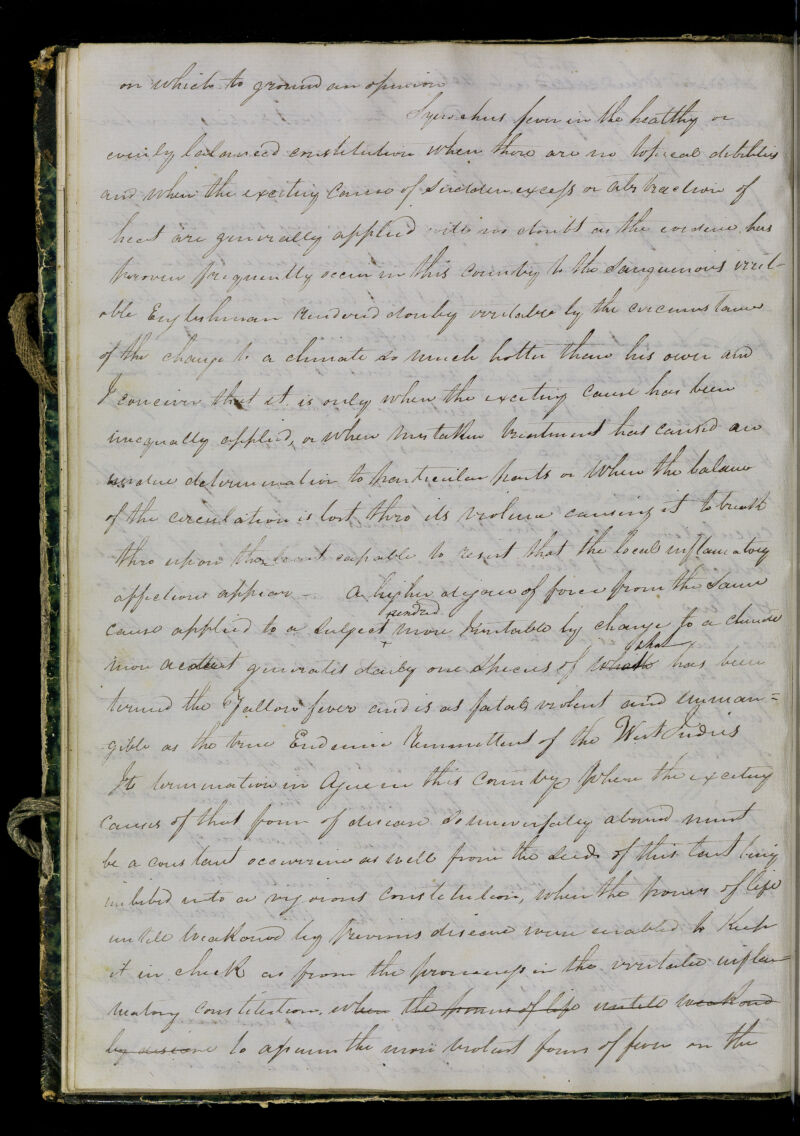 on which to ground an opinion
Synochus fever in the healthy or
evenly balanced constitution when there are no topical debilities
and when the exciting cause of sudden excess or abstraction of
heat are generally applied will no doubt as the evidence has
proven frequently occur in this country to the sanguineous irrit-
able Englishman rendered doubly irritable by the circumstance
of the change to a climate so much hotter than his own and
I conceive that it is only when the exciting cause has been
unequally applied, or when mistaken treatment has caused an
undue determination to particular parts or when the balance
of the circulation is lost thro its violence causing it to break
thro upon the least capable to resist that the local inflamatory
affections appear – a higher degree of force from the same
cause applied to a subject rendered more Irritable by change to a climate
more generates daily one species of what has been
termed the Yallow fever and is as fatal violent and unman=
gible as the true Endemic Remmittent of the West Indies
Its termination in Ague in this country where the exciting
causes of that form of disease so universally abound must
be a constant occurrence as well from the seeds of this taint being
imbibed into a vigorous constitution, when the powers of life
untill weakoned by previous disease were enabled to keep
it in check as from the proneness in the irritable inflam
matory constitution when the powers of life untill weakond
by disease to assume the more violent forms of fever on the